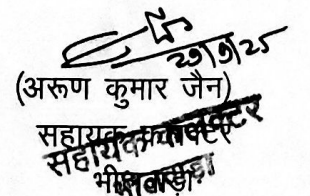 29/9/25
(अरूण कुमार जैन)
सहायक कलेक्टर
सहायक कलेक्टर
भीलवाड़ा